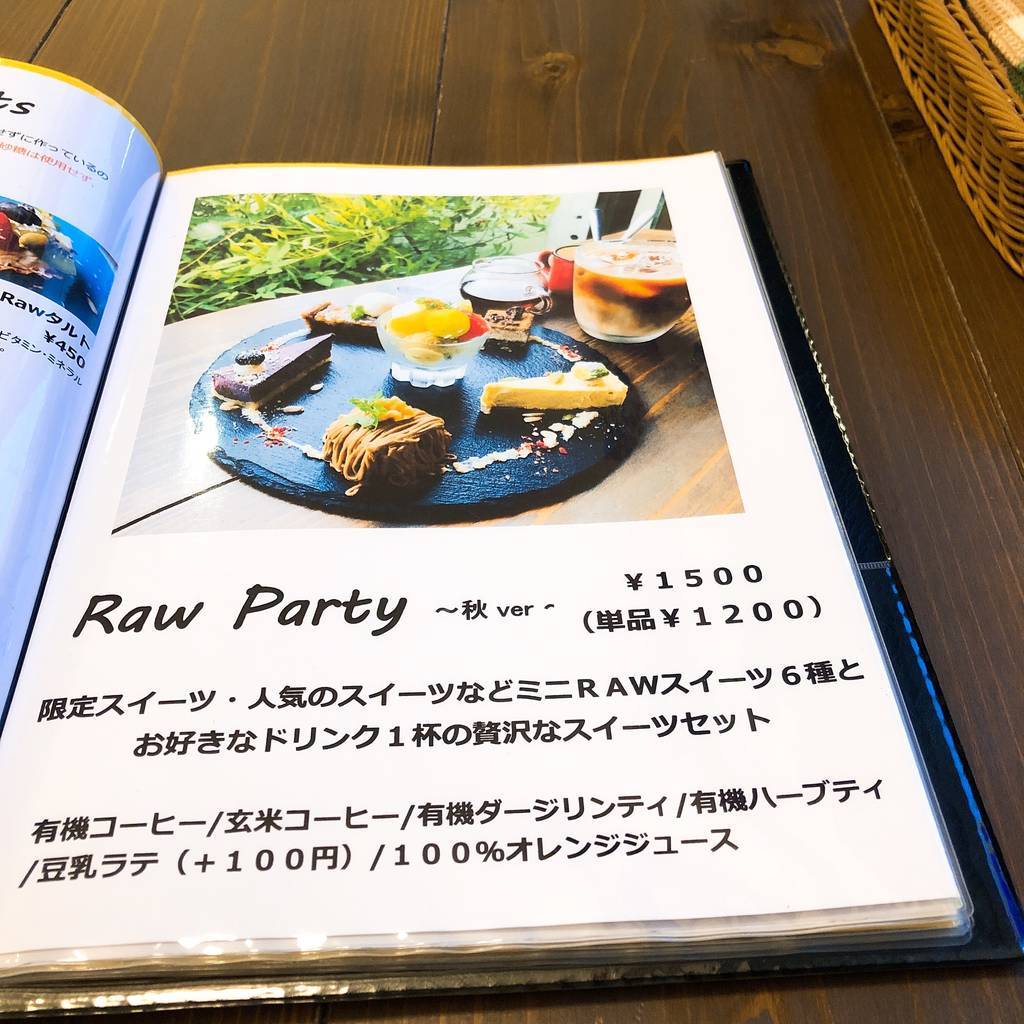 せずに作っているの
砂糖は使用せず、
Rawタルト
¥450
ビタミン・ミネラル
Raw Party ～秋 ver ~
￥１５００
（単品￥１２００）
限定スイーツ・人気のスイーツなどミニＲＡＷスイーツ６種と
お好きなドリンク１杯の贅沢なスイーツセット
有機コーヒー/玄米コーヒー/有機ダージリンティ/有機ハーブティ
/豆乳ラテ（＋１００円）/１００％オレンジジュース